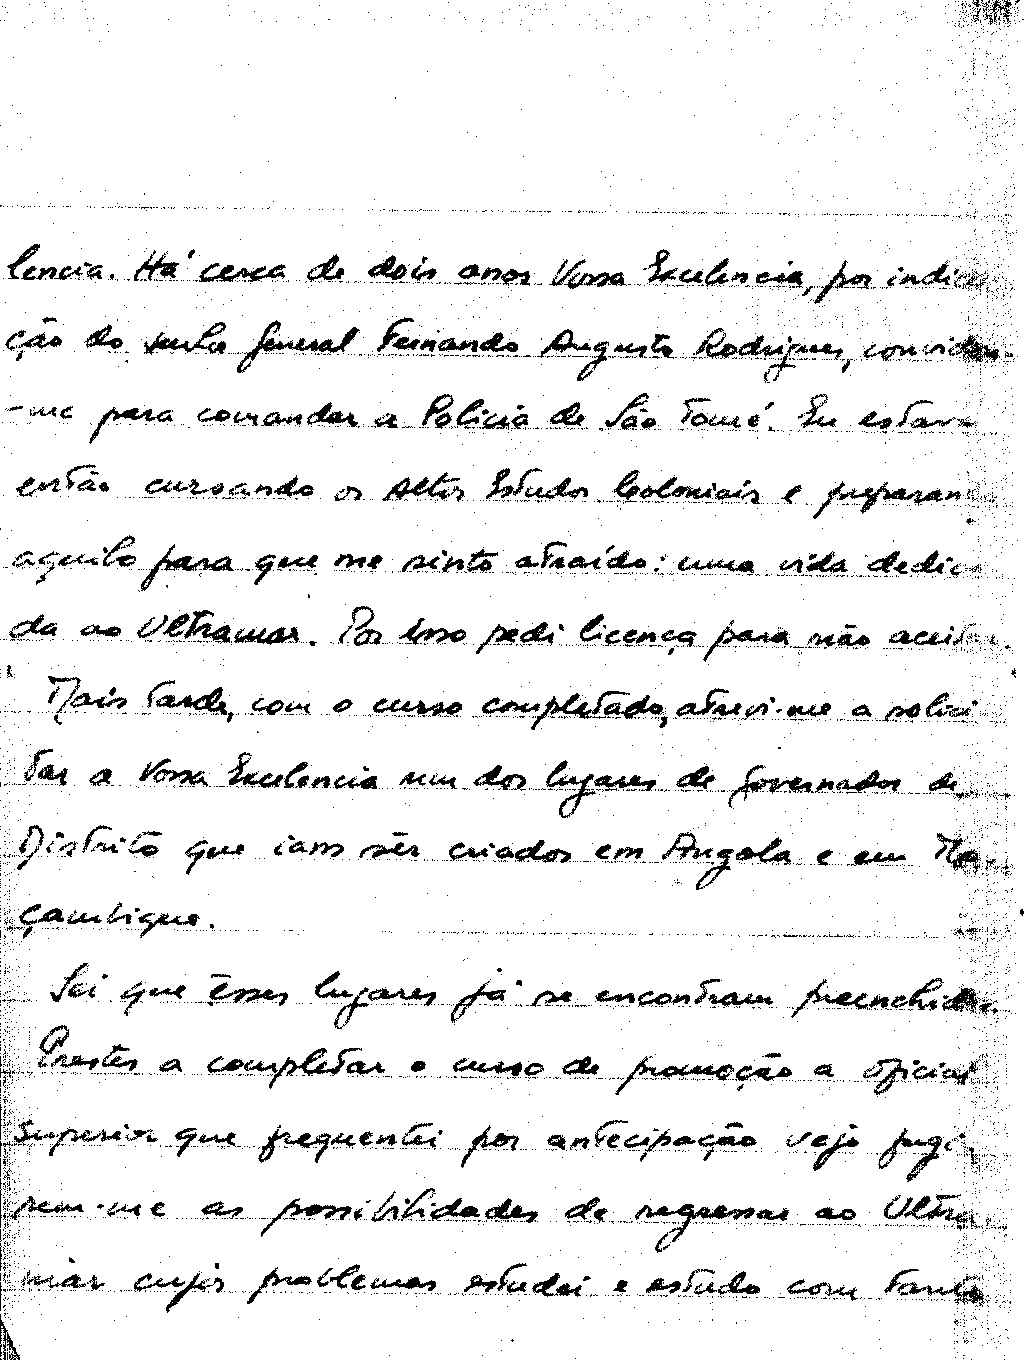 lencia. Há cerca de dois anos Vossa Excelencia, por indica
ção do senhor general Fernando Augusto Rodrigues, convidou-
-me para comandar a Policia de São Tomé. Eu estava
então cursando os Altos Estudos Coloniais e preparan
aquilo para que me sinto atraído: uma vida dedica
da ao Ultramar. Por isso pedi licença para não aceitar.
Mais tarde, com o curso completado, atrevi-me a solici
tar a Vossa Excelencia um dos lugares de governador de
Distrito que iam sêr criados em Angola e em Mo-
çambique.
Sei que êsses lugares já se encontram preenchidos.
Prestes a completar o curso de promoção a oficial
superior que frequentei por antecipação vejo fugi
rem-me as possibilidades de regressar ao Ultra
mar cujos problemas estudei e estudo com tanto